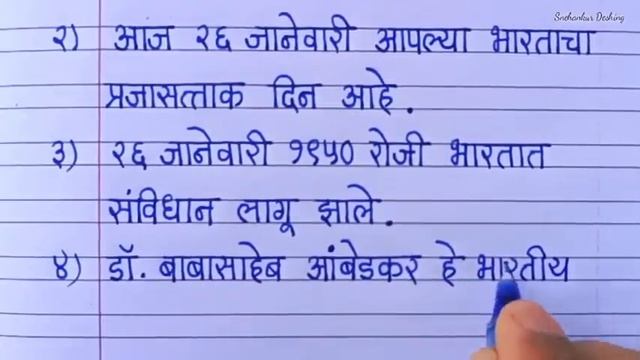 Snehankur Deshing
२) आज २६ जानेवारी आपल्या भारताचा
प्रजासत्ताक दिन आहे.
३) २६ जानेवारी १९५० रोजी भारतात
संविधान लागू झाले.
४) डॉ. बाबासाहेब आंबेडकर हे भारतीय